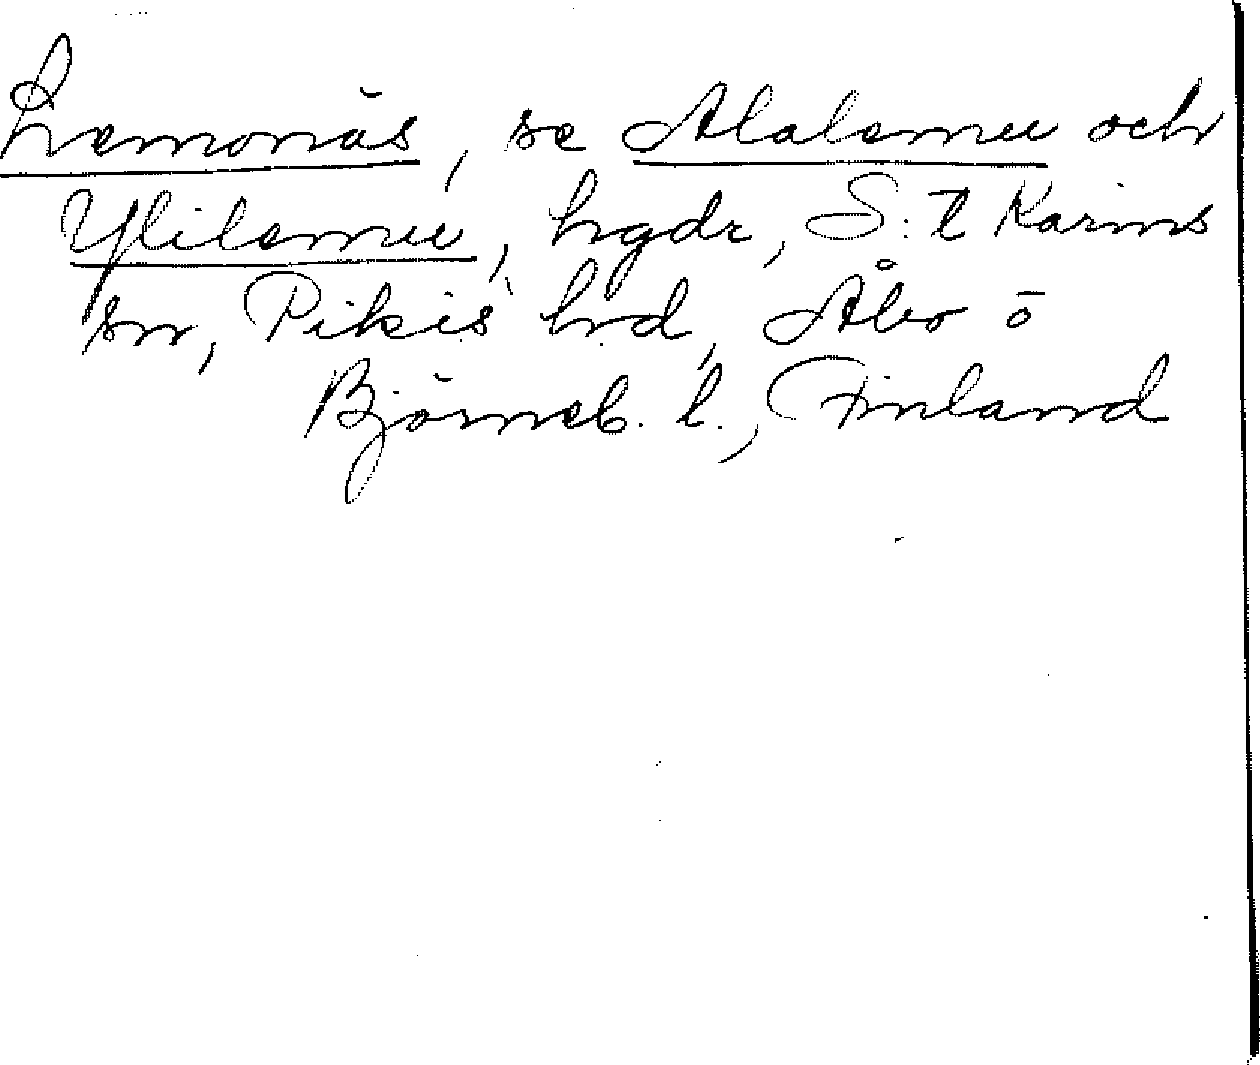 Lemonäs, se Alalemu och
Ylilemu, hgdr, S:t Karins
sn, Pikis hrd, Åbo o
Björneb. l., Finland